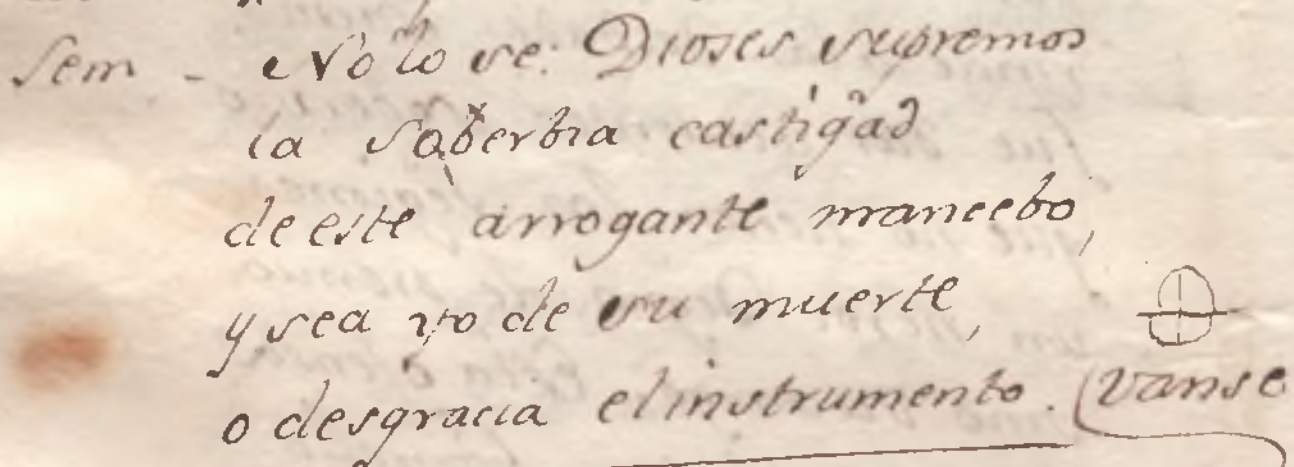 Sem - No lo se: Dioses supremos
la soberbia castigad
de este arrogante mancebo,
y sea yo de su muerte,
o desgracia el instrumento. (vanse